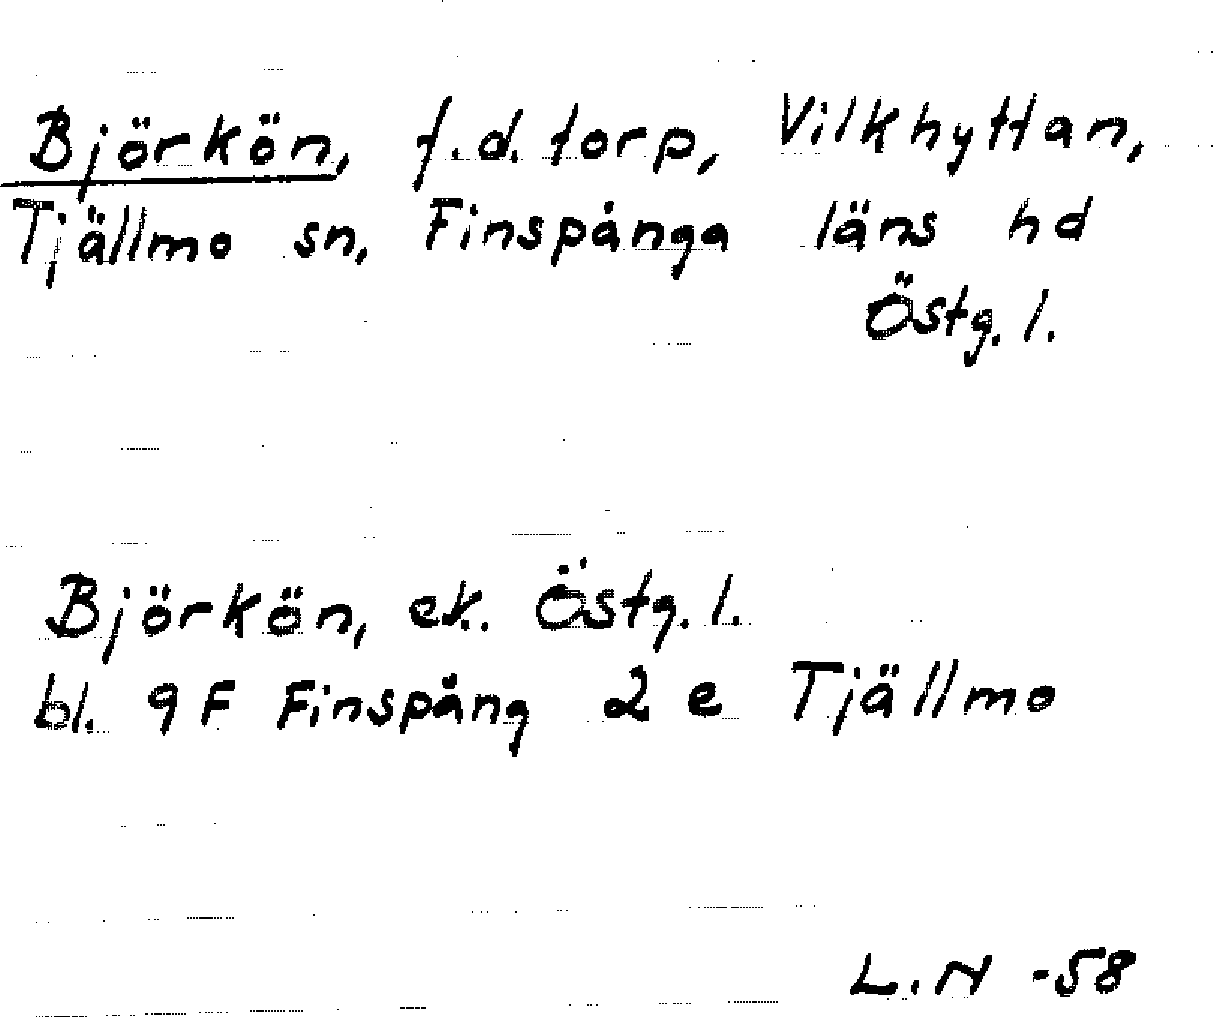 Björkön, f.d. torp, Vilkhyttan,
Tjällmo sn, Finspånga läns hd
Östg. l.
Björkön, ek. Östg. l.
bl. 9 F Finspång 2 e Tjällmo
L.N -58